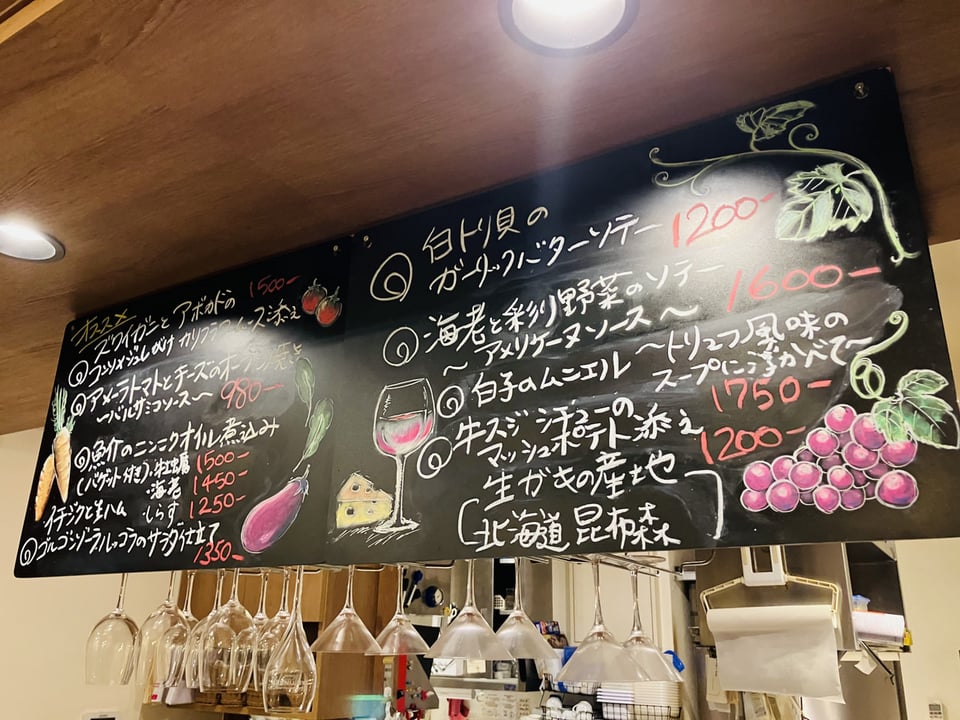 オススメ
ズワイガニと アボカドの 1500-
コンソメジュレがけ カリフラワームース添え
アメーラトマトとチーズのオーブン焼き
〜バルサミコソース〜 980-
魚介のニンニクオイル煮込み
(バゲット付き)・牡蠣 1500-
・海老 1450-
・しらす 1250-
イチジクと生ハム
ゴルゴンゾーラルッコラのサラダ仕立て
1350-
白トリ貝の
ガーリックバターソテー 1200-
海老と彩り野菜のソテー
〜アメリケーヌソース〜 1600-
白子のムニエル 〜トリュフ風味の
スープに浮かべて〜
1750-
牛スジシチューの
マッシュポテト添え 1200-
生がきの産地
北海道 昆布森